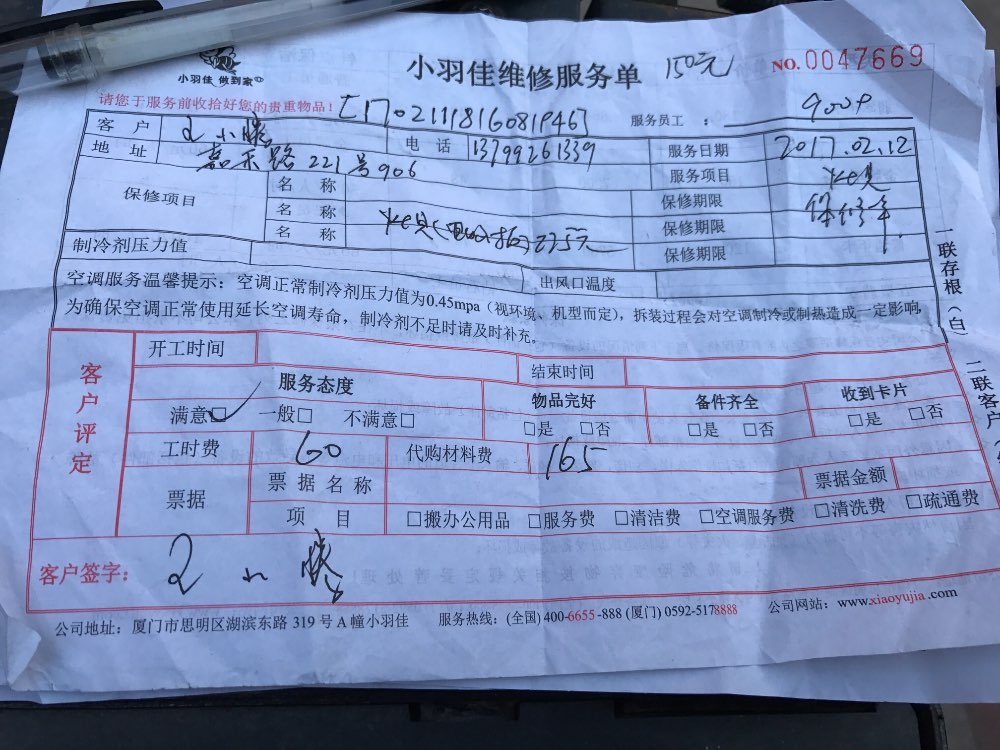 小羽佳 做到家
小羽佳维修服务单 150元 NO.0047669
请您于服务前收拾好您的贵重物品！ 服务员工 ：
客户 小 电话 13799261339 服务日期 2017.02.12
地址 嘉禾路221号906 服务项目
保修项目 名称 保修期限
名称 保修期限
名称 225元 保修期限
制冷剂压力值 出风口温度
空调服务温馨提示：空调正常制冷剂压力值为0.45mpa（视环境、机型而定），拆装过程会对空调制冷或制热造成一定影响,
为确保空调正常使用延长空调寿命，制冷剂不足时请及时补充。
一联存根（白）
二联客户
客户评定
开工时间 结束时间
服务态度 物品完好 备件齐全 收到卡片
满意□ 一般□ 不满意□ □是 □否 □是 □否 □是 □否
工时费 60 代购材料费 165
票据 票据名称 票据金额
项目 □搬办公用品 □服务费 □清洁费 □空调服务费 □清洗费 □疏通费
客户签字： 小
公司地址：厦门市思明区湖滨东路 319 号 A 幢小羽佳 服务热线：(全国) 400-6655-888 (厦门) 0592-5178888 公司网站：www.xiaoyujia.com